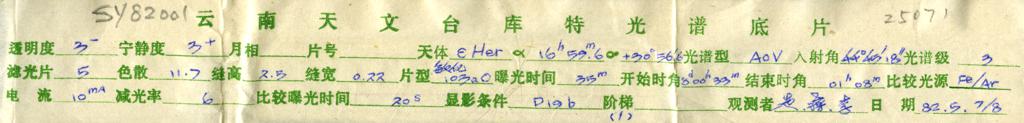 SY82001 云南天文台库特光谱底片 25071
透明度 3⁻ 宁静度 3⁺ 月相 片号 天体 ε Her α 16ʰ 59ᵐ.6 δ +30° 56′.6 光谱型 A0V 入射角 光谱级 3
滤光片 5 色散 11.7 缝高 2.5 缝宽 0.22 片型 敏化 103aO 曝光时间 35ᵐ 开始时角 0ʰ33ᵐ 结束时角 01ʰ08ᵐ 比较光源 Fe/Ar
电流 10ᵐᴬ 减光率 6 比较曝光时间 20ˢ 显影条件 D19b 阶梯 (1) 观测者 日期 82.5.7/8